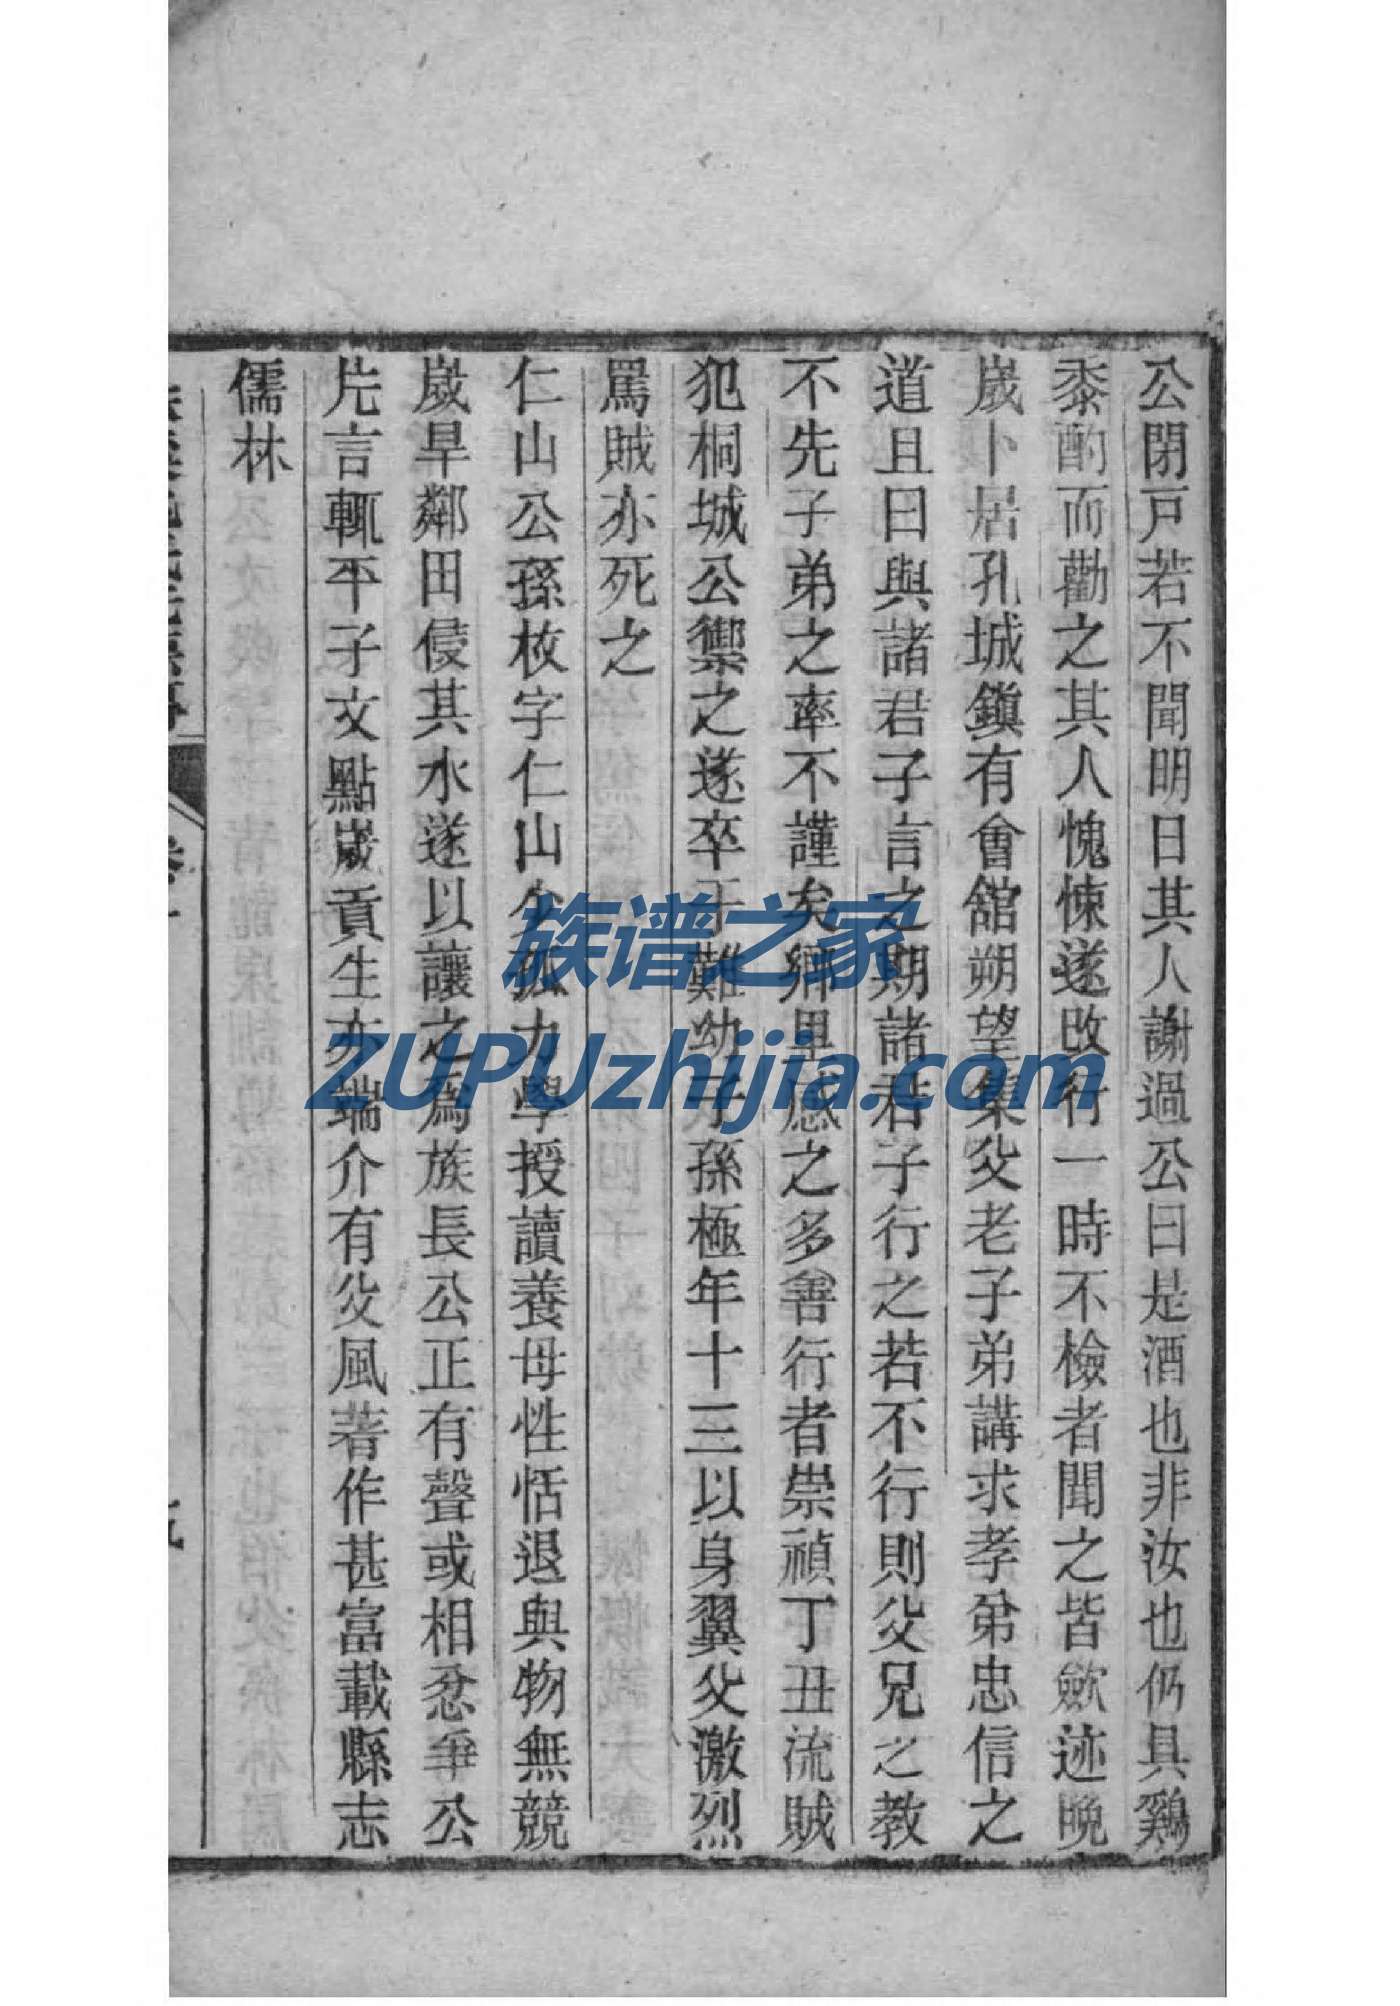 公閉戸若不聞明日其人謝過公曰是酒也非汝也仍具鷄
黍酌而勸之其人愧悚遂改行一時不檢者聞之皆歛迹晩
歲卜居孔城鎭有會舘朔望集父老子弟講求孝弟忠信之
道且曰與諸君子言之期諸君子行之若不行則父兄之教
不先子弟之率不謹矣鄉里感之多善行者崇禎丁丑流賊
犯桐城公禦之遂卒于難幼子孫極年十三以身翼父激烈
罵賊亦死之
仁山公孫枚字仁山少孤力學授讀養母性恬退與物無競
歲旱鄰田侵其水遂以讓之爲族長公正有聲或相忿爭公
片言輒平子文點歲貢生亦端介有父風著作甚富載縣志
儒林
族谱之家
ZUPUzhijia.com